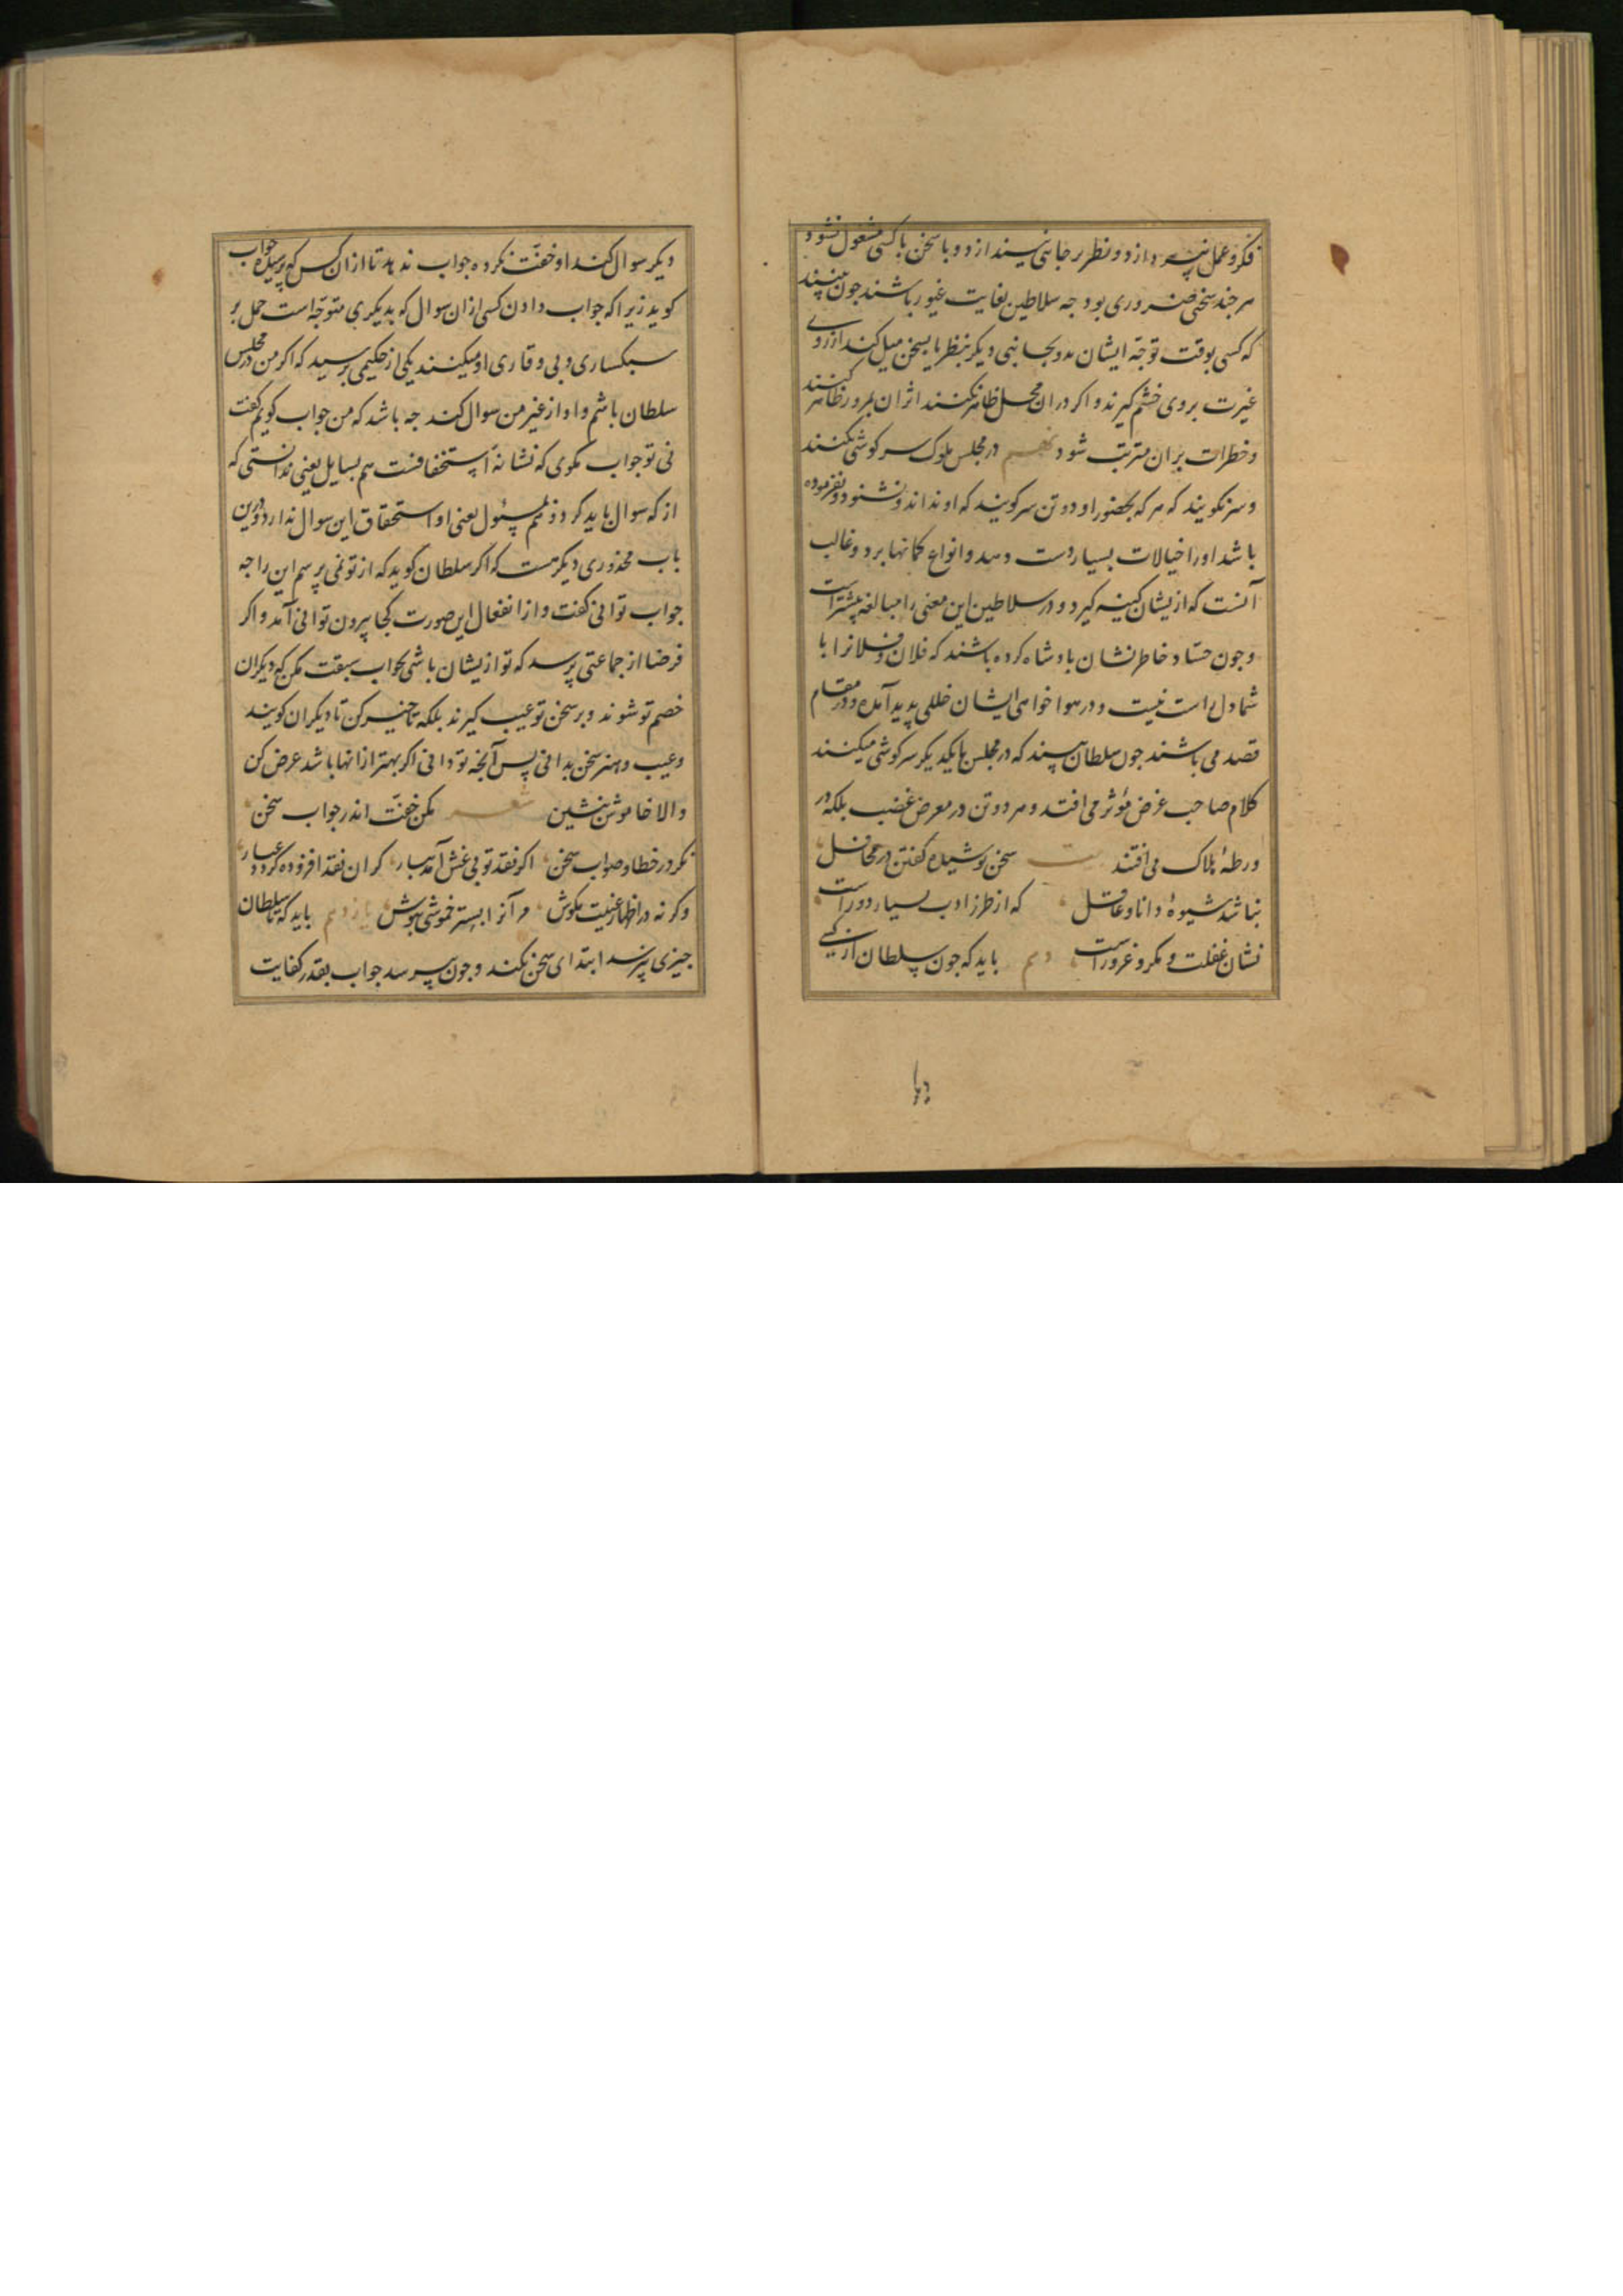 فکر و عمل نپردازد و نظر بر جانبی نیندازد و با سخن با کسی مشغول نشود
هر چند سخنی ضروری بود چه سلاطین بغایت غیور باشند چون بینند
که کسی بوقت توجه ایشان بدو بجانبی دیگر بنظر یا بسخن میل کند از روی
غیرت بر وی خشم گیرند و اگر در ان محل ظاهر نکنند اثر ان بمرور ظاهر کنند
و خطرات بر ان مترتب شود نهم در مجلس ملوک سرگوشی نکنند
و سر نگویند که هر که بحضور او دو تن سر گویند که او نداند و نشنود و نفرموده
باشد او را خیالات بسیار دست دهد و انواع گمانها برد و غالب
آنست که ازیشان کینه گیرد و در سلاطین این معنی را مبالغه بیشتر است
و چون حسّاد خاطرنشان بادشاه کرده باشند که فلان و فلانرا با
شما دل راست نیست و در هوا خواهی ایشان خللی پدید آمده و در مقام
قصد می باشند چون سلطان بیند که در مجلس با یکدیگر سرگوشی میکنند
کلام صاحب غرض مؤثر می افتد و هر دو تن در معرض غضب بلکه در
ورطهٔ هلاک می افتند بیت سخن پوشیده گفتن در محافل
نباشد شیوهٔ دانا و عاقل که از طرز ادب بسیار دور است
نشان غفلت و مکر و غرور است دهم باید که چون سلطان از کسی
دیگر
دیگر سوال کند او خفّت نکرده جواب ندهد تا ازان کس که پرسیده جواب
گوید زیرا که جواب دادن کسی ازان سوال که بدیگری متوجّه است حمل بر
سبکساری و بی وقاری او میکنند یکی از حکیمی پرسید که اگر من در مجلس
سلطان باشم و او از غیر من سوال کند چه باشد که من جواب گویم گفت
نی تو جواب مگوی که نشانهٔ استخفافست هم بسایل یعنی ندانستی که
از که سوال باید کرد و هم بمسئول یعنی او استحقاق این سوال ندارد و درین
باب محذوری دیگر هست که اگر سلطان گوید که از تو نمی پرسم این را چه
جواب توانی گفت و از انفعال این صورت کجا بیرون توانی آمد و اگر
فرضا از جماعتی پرسد که تو ازیشان باشی بجواب سبقت مکن که دیگران
خصم تو شوند و بر سخن تو عیب گیرند بلکه تاخیر کن تا دیگران گویند
و عیب و هنر سخن بدانی پس آنچه تو دانی اگر بهتر از انها باشد عرض کن
و الا خاموش بنشین شعر مکن خفّت اندر جواب سخن
نگر در خطا و صواب سخن اگر نقد تو بی غش آمد بیار کزان نقد افزوده گردد عیار
وگر نه در اظهار عیبت مکوش مر آنرا بستر خموشی بپوش یازدهم باید که تا سلطان
چیزی نپرسد ابتدای سخن نکند و چون پرسد جواب بقدر کفایت